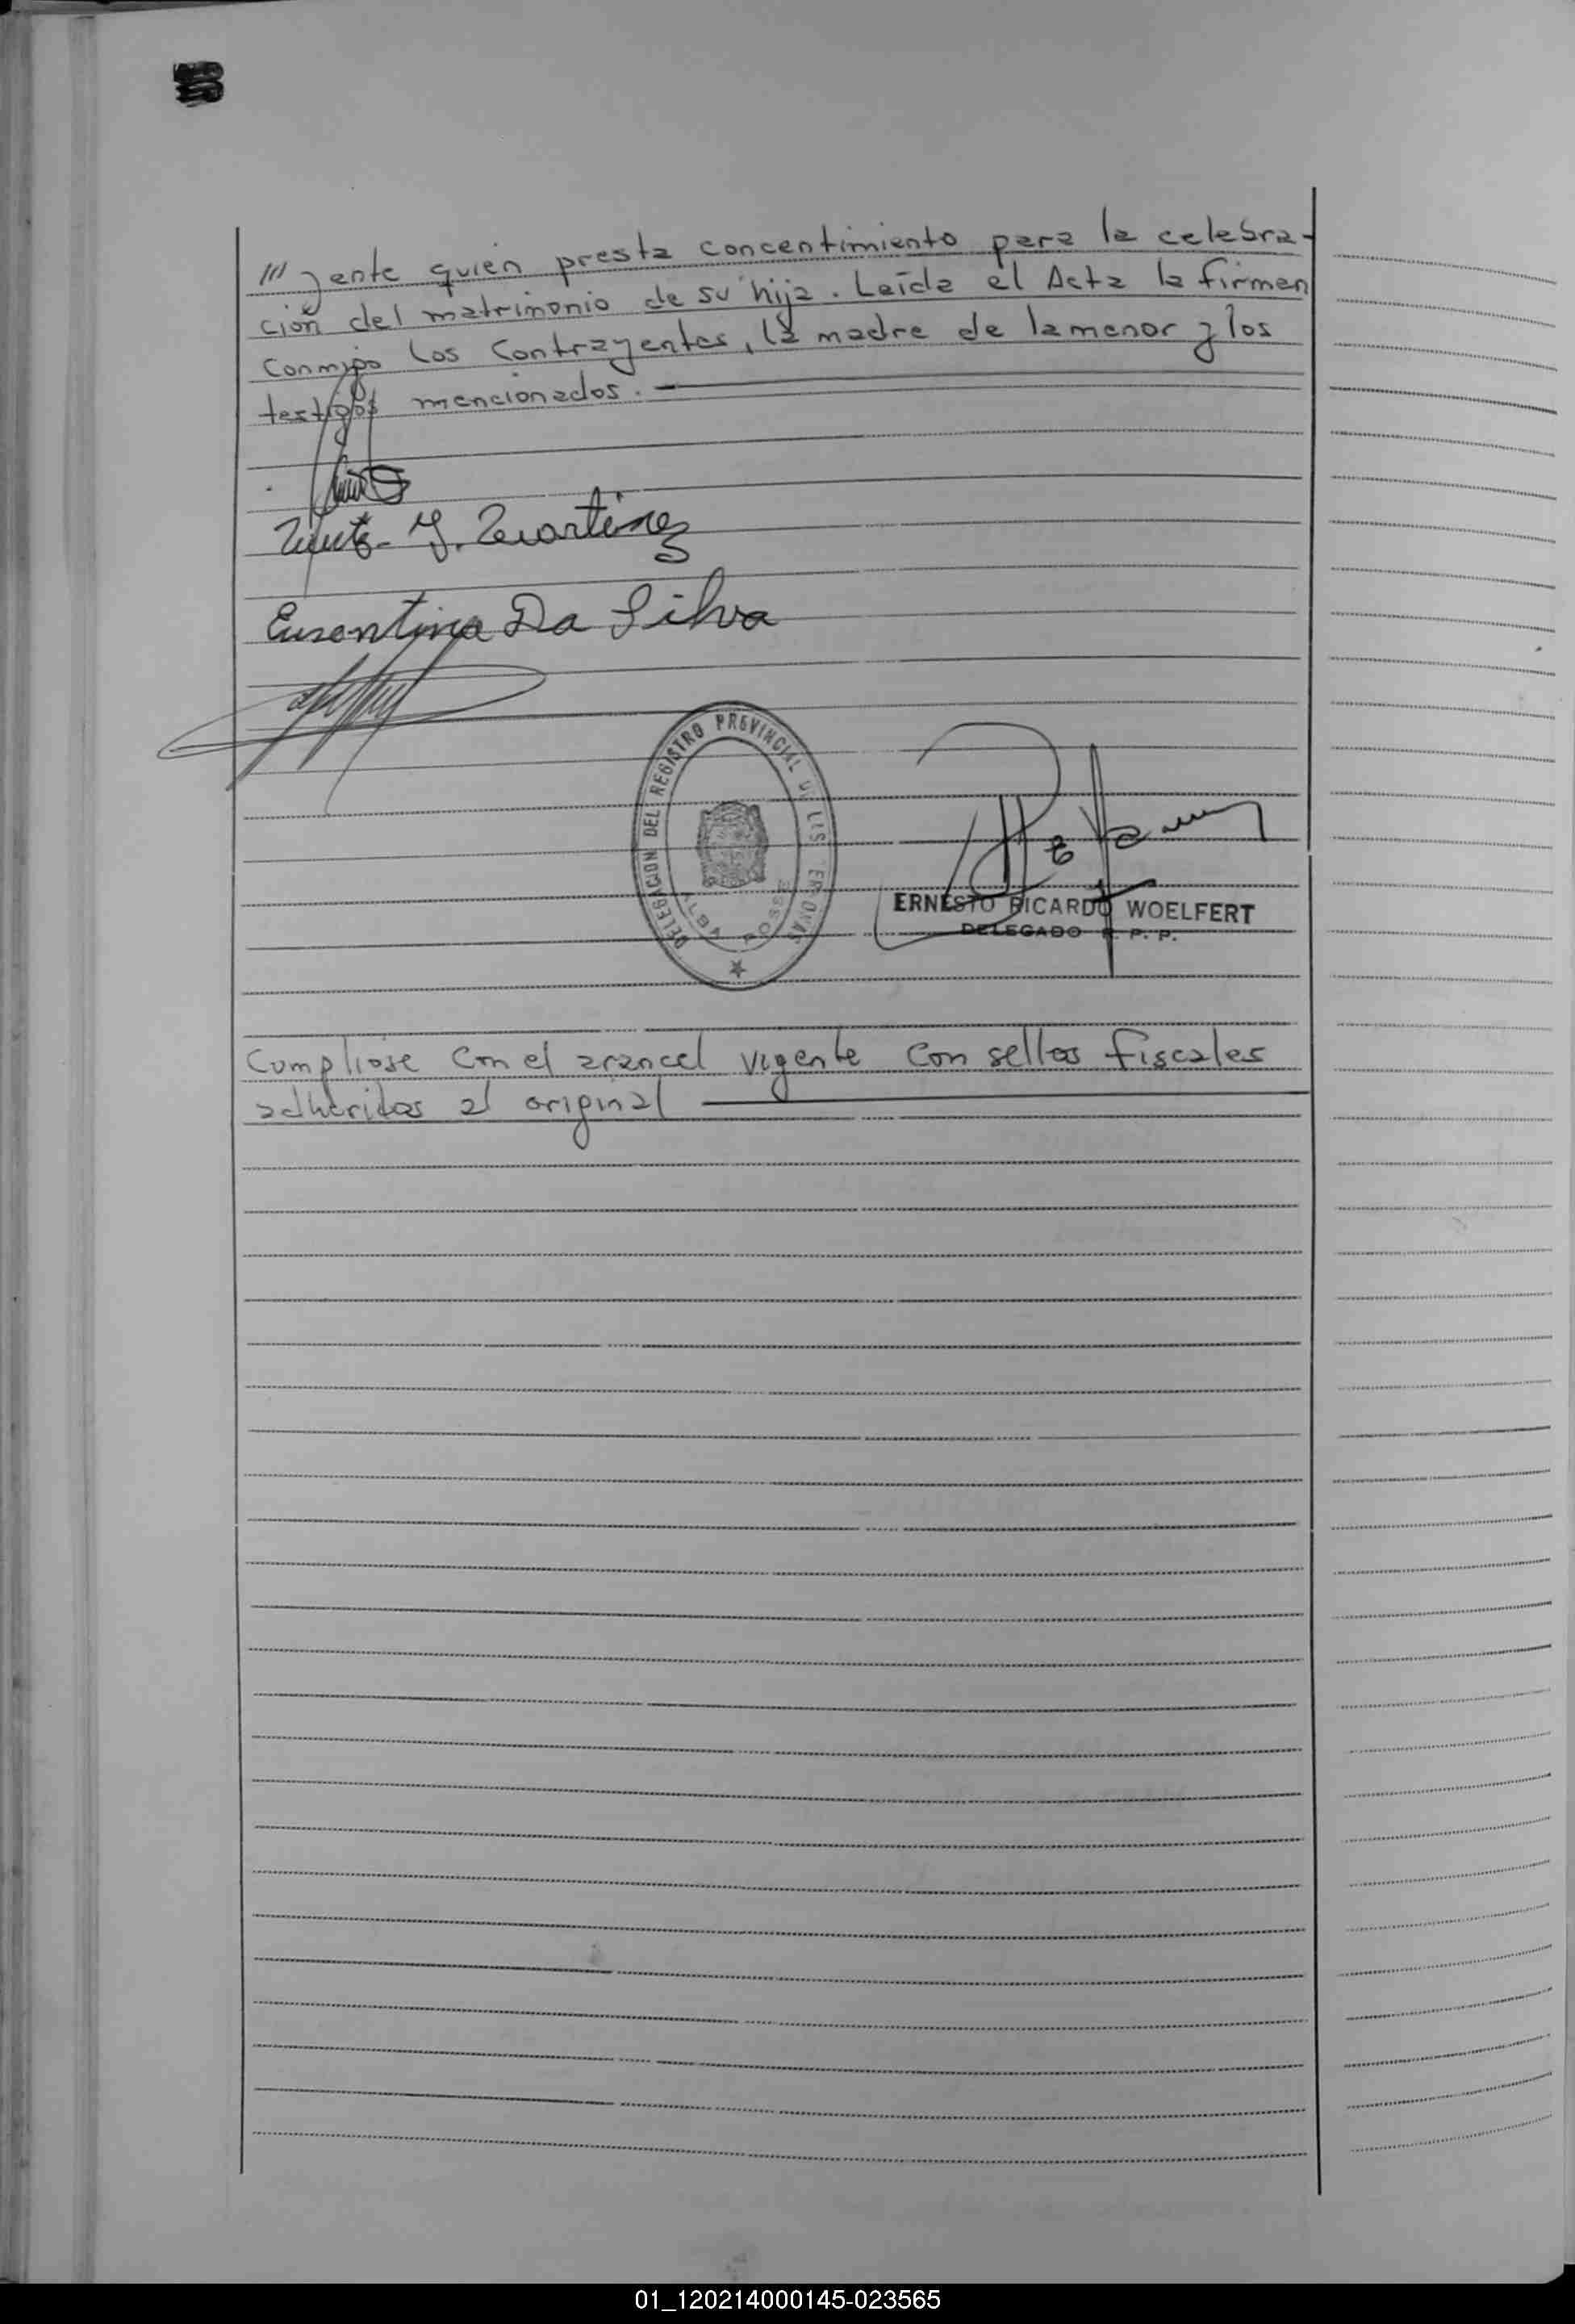 /// yente quien presta concentimiento para la celebra-
ción del matrimonio de su hija. Leída el Acta la firman
conmigo los contrayentes, la madre de la menor y los
testigos mencionados.
J. Martinez
Da Silva
DELEGACION DEL REGISTRO PROVINCIAL DE LAS PERSONAS
ALBA POSSE
ERNESTO RICARDO WOELFERT
DELEGADO R. P. P.
Cumpliose con el arancel vigente con sellos fiscales
adheridos al original
01_120214000145-023565